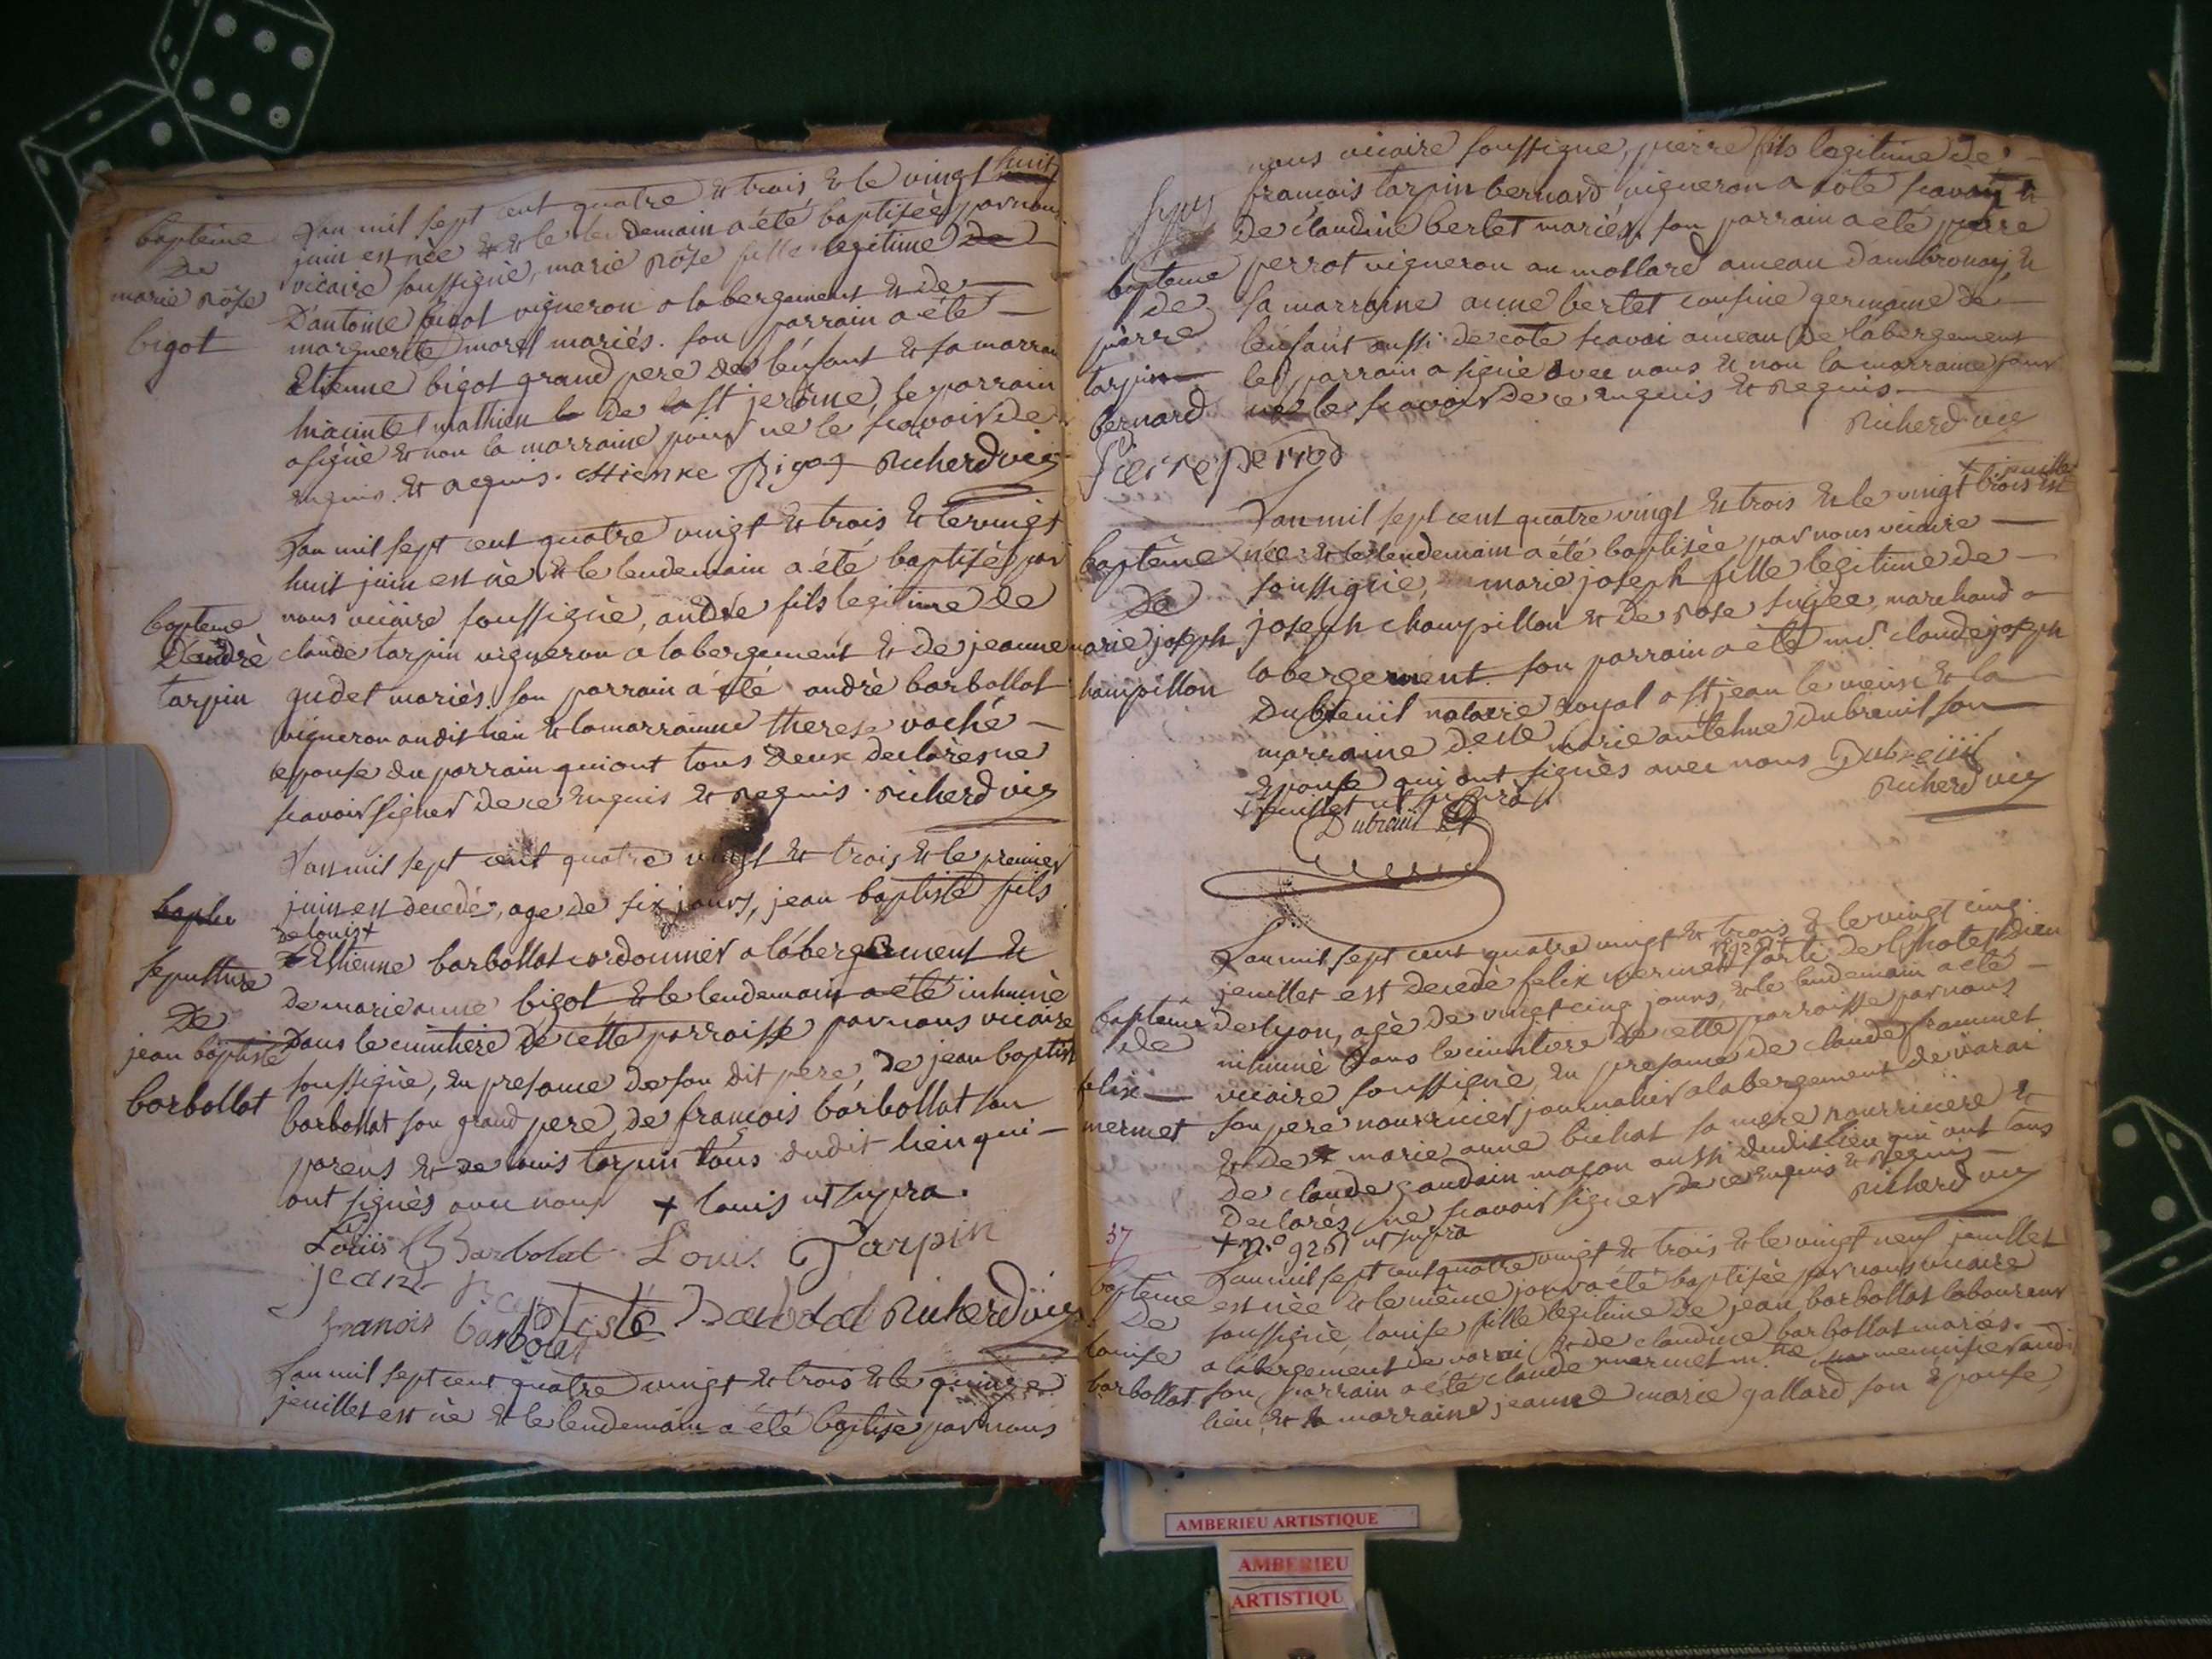 bapteme
De
marie rôse
bigot
Lan mil sept cent quatre & trois & le vingt huit
juin est née & le lendemain a été baptisée par nous
vicaire soussigné, marie rôse fille legitime de
D'antoine bigot vigneron a labergement & de
marguerite morel mariés. son parrain a été
Etienne bigot grand pere de l'enfant & sa marraine
hiacinte mathieu de st jerôme, le parrain
a signé & non la marraine pour ne le scavoir de
enquis & requis. Estienne Bigot Richerd vic
bapteme
D'andrè
tarpin
Lan mil sept cent quatre vingt & trois & le vingt
huit juin est nè & le lendemain a été baptisé par
nous vicaire soussignè, andré fils legitime de
claude tarpin vigneron a labergement & de jeanne
gudet mariés. son parrain a été andrè barbollat
vigneron audit lieu & la marraine therese vaché
epouse du parrain qui ont tous deux declarès ne
scavoir signer de ce enquis & requis. Richerd vic
sepulture
De
jean baptiste
barbollat
Lan mil sept cent quatre vingt & trois & le premier
juin est decedé, age de six jours, jean baptiste fils
de louis +
Estienne barbollat cordonnier a labergement &
de marie anne bigot & le lendemain a été inhumè
dans le cimitiere de cette parroisse par nous vicaire
soussigné, en presence de son dit pere, de jean baptiste
barbollat son grand pere, de francois barbollat son
parens & de louis tarpin tous dudit lieu qui
ont signès avec nous + louis ut supra.
Louis Barbolat Louis Tarpin
jean baptiste Barbolat Richerd vic
franois barbolat
Lan mil sept cent quatre vingt & trois & le quinze
jeuillet est nè & le lendemain a été baptisé par nous
bapteme
de
pierre
tarpin
bernard
nous vicaire soussigné, pierre fils legitime de
francois tarpin bernard vigneron a côte savay &
de claudine berlet mariés. son parrain a été pierre
perrot vigneron au mollard ameau d'ambronay &
sa marraine anne berlet cousine germaine de
lenfant aussi de côte savai ameau de labergement
le parrain a signè avec nous & non la marraine pour
ne le scavoir de ce enquis & requis.
Richerd vic
Pierre perrod
baptême
De
marie joseph
champillon
Lan mil sept cent quatre vingt & trois & le vingt + trois est
née & le lendemain a été baptisée par nous vicaire
soussignè, marie joseph fille legitime de
joseph champillon & de rose sugée, marchand a
labergement. son parrain a été mr. claude joseph
Dubreuil notaire royal a st jean le vieux & la
marraine delle marie antehne Dubreuil son
epouse qui ont signès avec nous Dubreuil
+ jeuillet ut supra
Richerd vic
Dubreuil
bapteme
de
felix
mermet
Lan mil sept cent quatre vingt & trois & le vingt cinq
jeuillet est decedè felix mermet + sorti de lhotel dieu
de lyon, agè de vingt cinq jours, & le lendemain a été
inhumè dans le cimitiere de cette parroisse par nous
vicaire soussignè, en presence de claude frammet
son pere nourricier journalier a labergement de varai
& de marie anne bichat sa mere nourriciere &
de claude gaudain maçon aussi dudit lieu qui ont tous
declarès ne scavoir signer de ce enquis & requis
Richerd vic
+ no. 9261 ut supra
37
baptême
De
louise
barbollat
Lan mil sept cent quatre vingt & trois & le vingt neuf jeuillet
est née & le même jour a été baptisée par nous vicaire
soussigné, louise fille legitime de jean barbollat laboureur
a labergement de varai & de claudine barbollat mariés.
son parrain a été claude mermet m.tre menuisier audit
lieu, & la marraine jeanne marie gallard son epouse
AMBERIEU ARTISTIQUE
AMBERIEU
ARTISTIQU